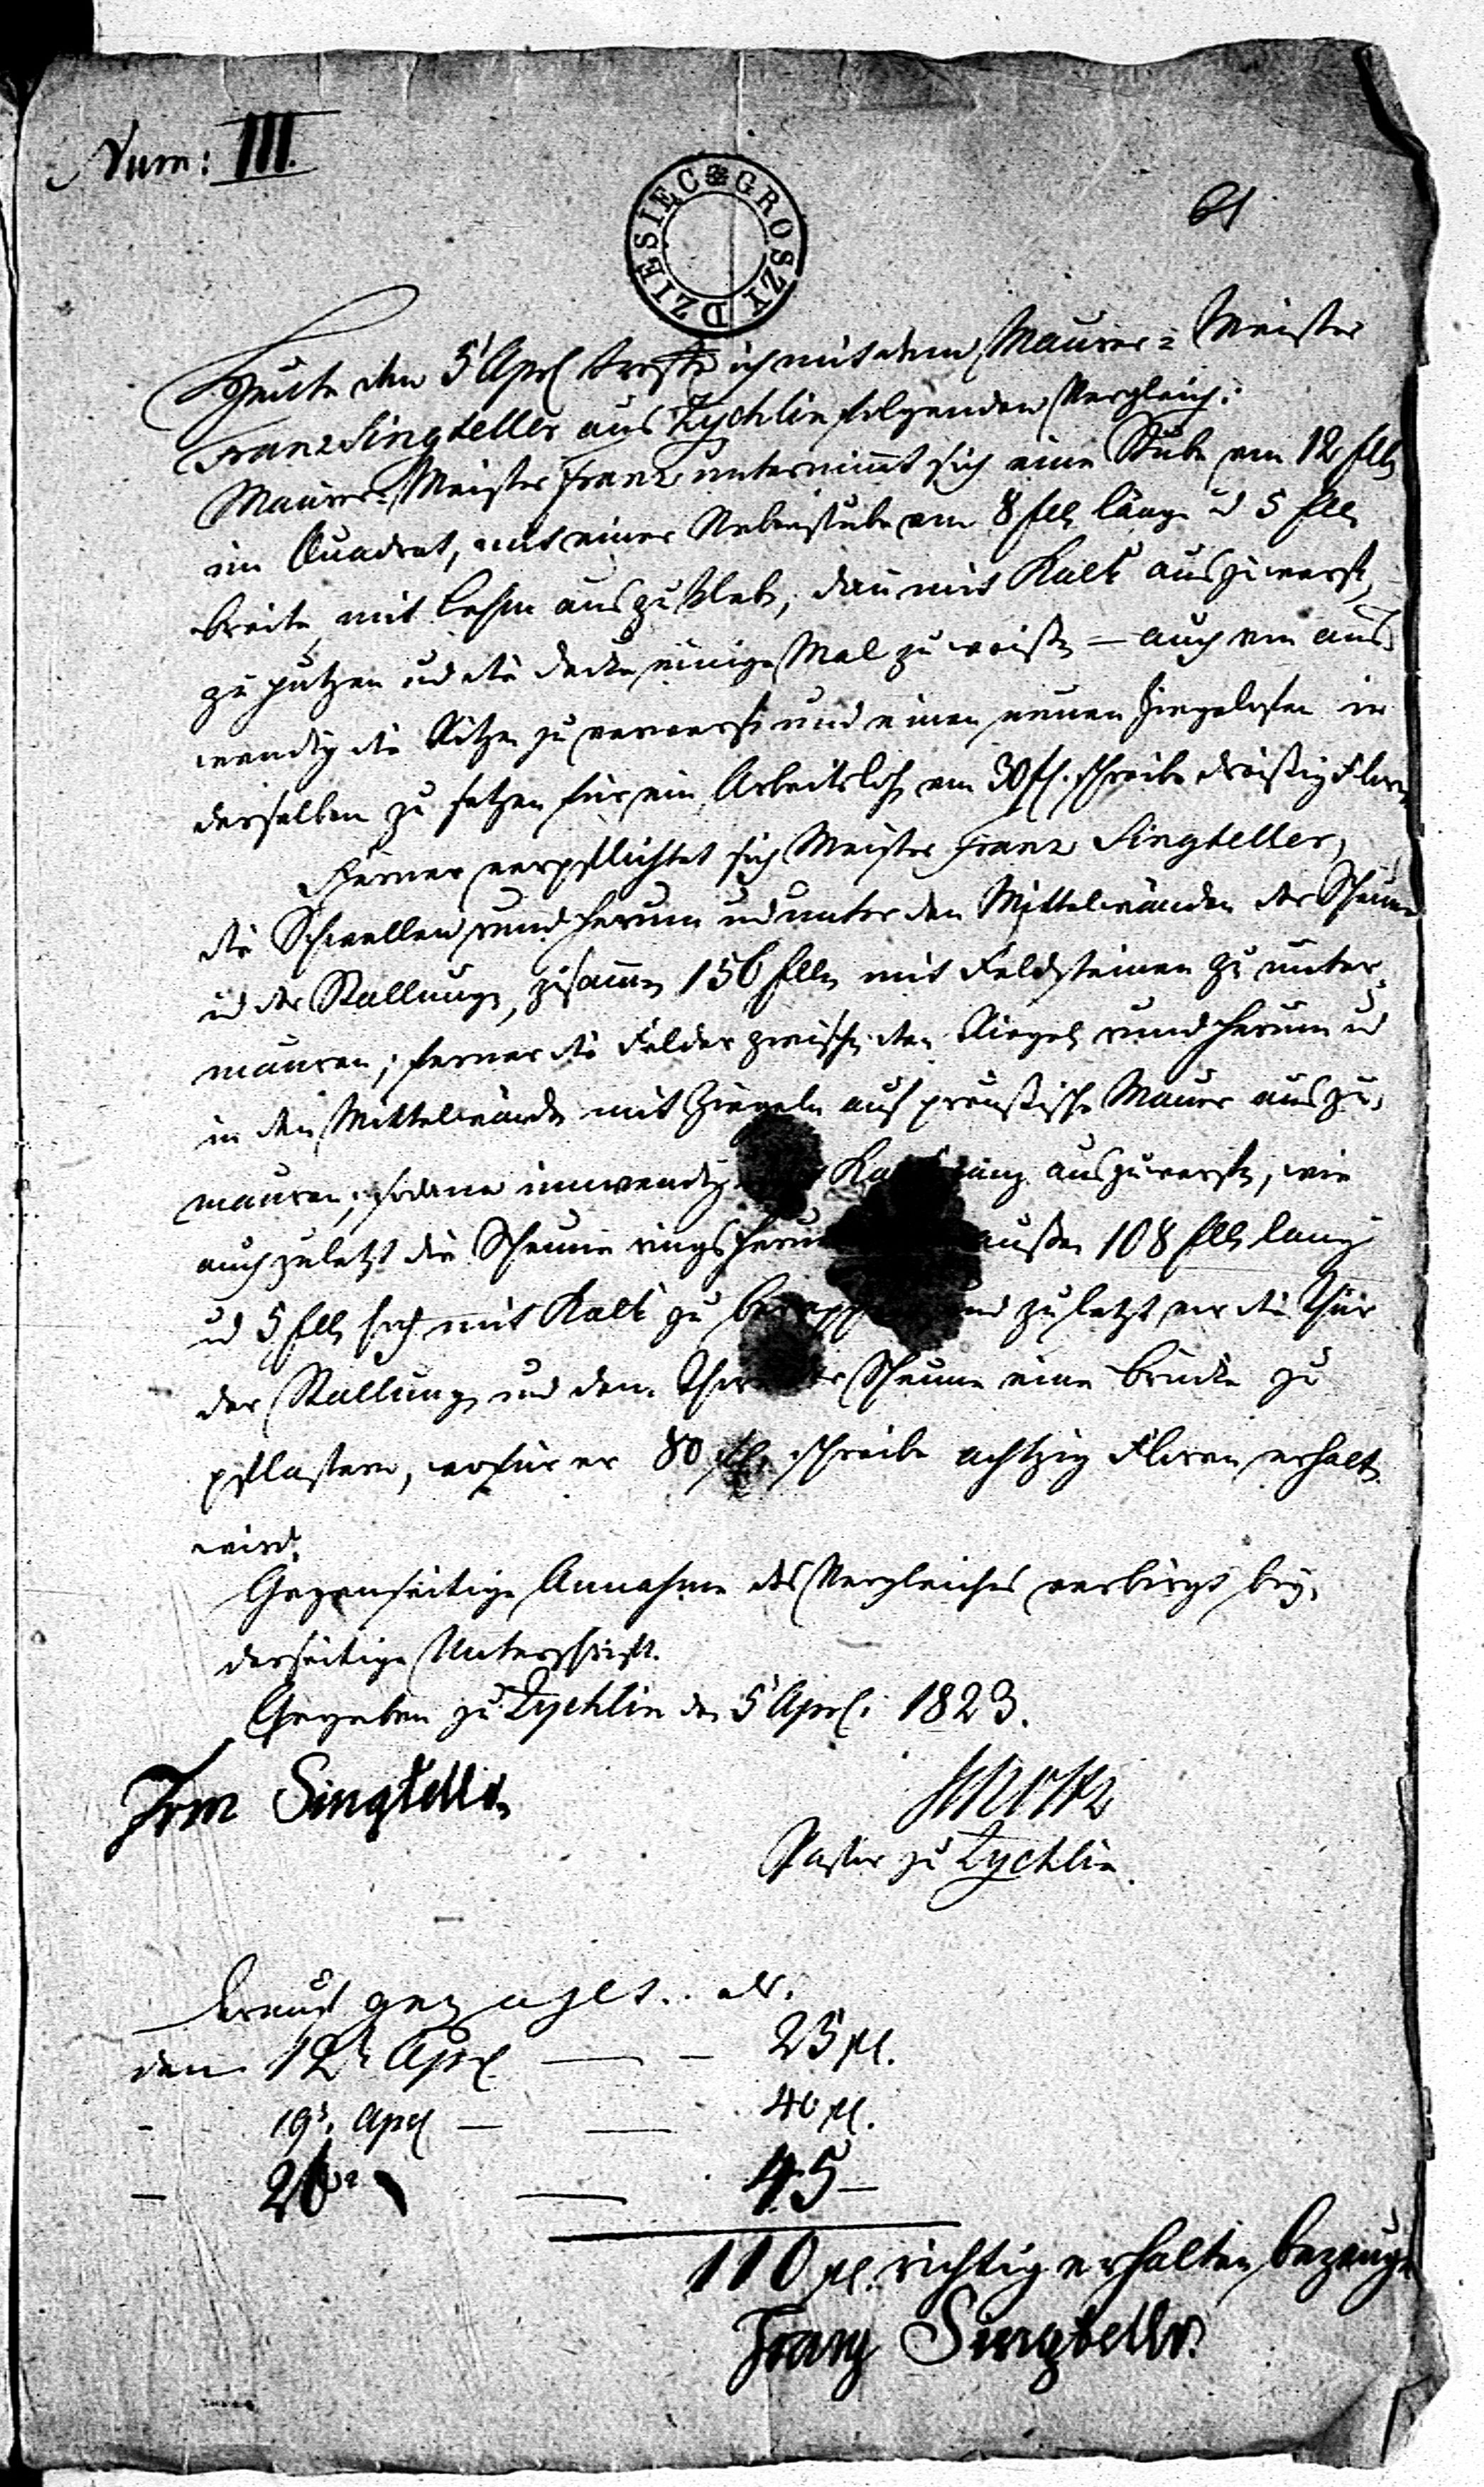 Num: III.
DZIESIĘC GROSZY
61
Heute den 5 Aprl treffe ich mit dem Maurer-Meister
Franz Singteller aus Zychlin folgenden Vergleich:
Maurer-Meister Franz unternimmt sich eine Stube von 12 Elln
im Quadrat, mit einer Nebenstube von 8 Elln länge ud 5 Elln
breite mit Lehm auszukleben, dann mit Kalk auszuwerfen,
zu putzen ud die Decke einige Mal zu weißen – auch von aus-
wendig die Ritzen zu verwerfen und einen neuen Ziegelofen in
derselben zu setzen für ein Arbeitslohn von 30 fl. schreibe dreißig Floren
Ferner verpflichtet sich Meister Franz Singteller,
die Schwellen rund herum ud unter den Mittelwänden der Scheune
ud der Stallung, zusammen 156 Elln mit Feldsteinen zu unter-
mauren; ferner die Felder zwischen den Riegeln rund herum ud
in den Mittelwänden mit Ziegeln auf preußische Mauer auszu-
mauren; sodann inwendig auszuwerfen, wie
auch zuletzt die Scheune rings herum außen 108 Elln lang
ud 5 Elln hoch mit Kalk zu und zuletzt vor die Thür
der Stallung und dem Scheune eine Brücke zu
pflastern, wofür er 80 fl. schreibe achtzig Floren erhalten
wird.
Gegenseitige Annahme des Vergleiches verbürgt bey-
derseitige Unterschrift.
Gegeben zu Zychlin den 5 Aprl. 1823.
Franz Singteller
Pastor zu Zychlin.
Darauf gezahlt..
den 12t Aprl — — 23 fl.
- 19t. Aprl — — 40 fl.
- 26 — 45 –
110 fl. richtig erhalten bezeuge
Franz Singteller.